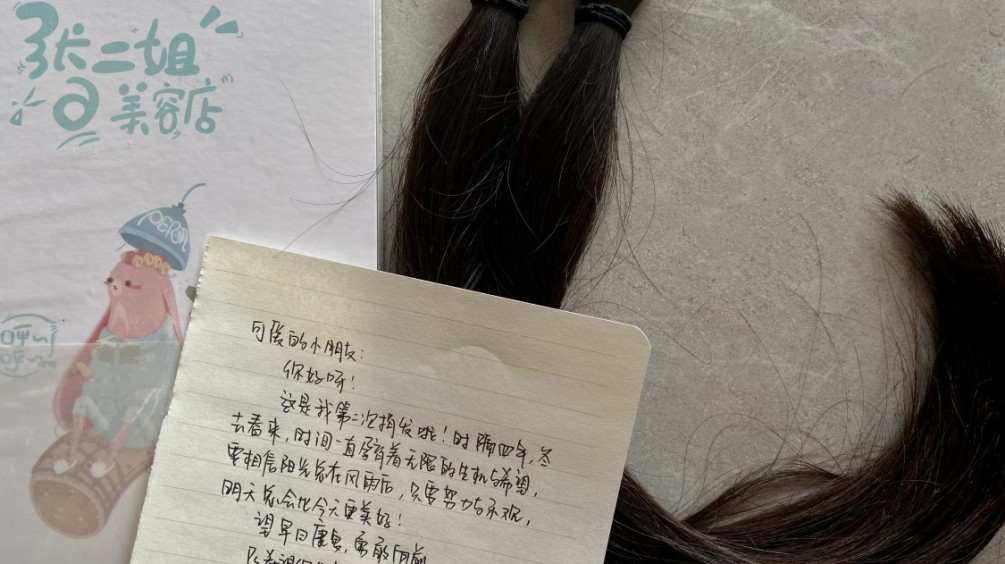 张二姐
@美容店
PERM
呼~
呼~
可爱的小朋友:
你好呀!
这是我第二次捐发啦!时隔四年,冬
去春来,时间一直孕育着无限的生机与希望,
要相信阳光总在风雨后,只要努力与乐观,
明天总会比今天更美好!
望早日康复,勇敢向前